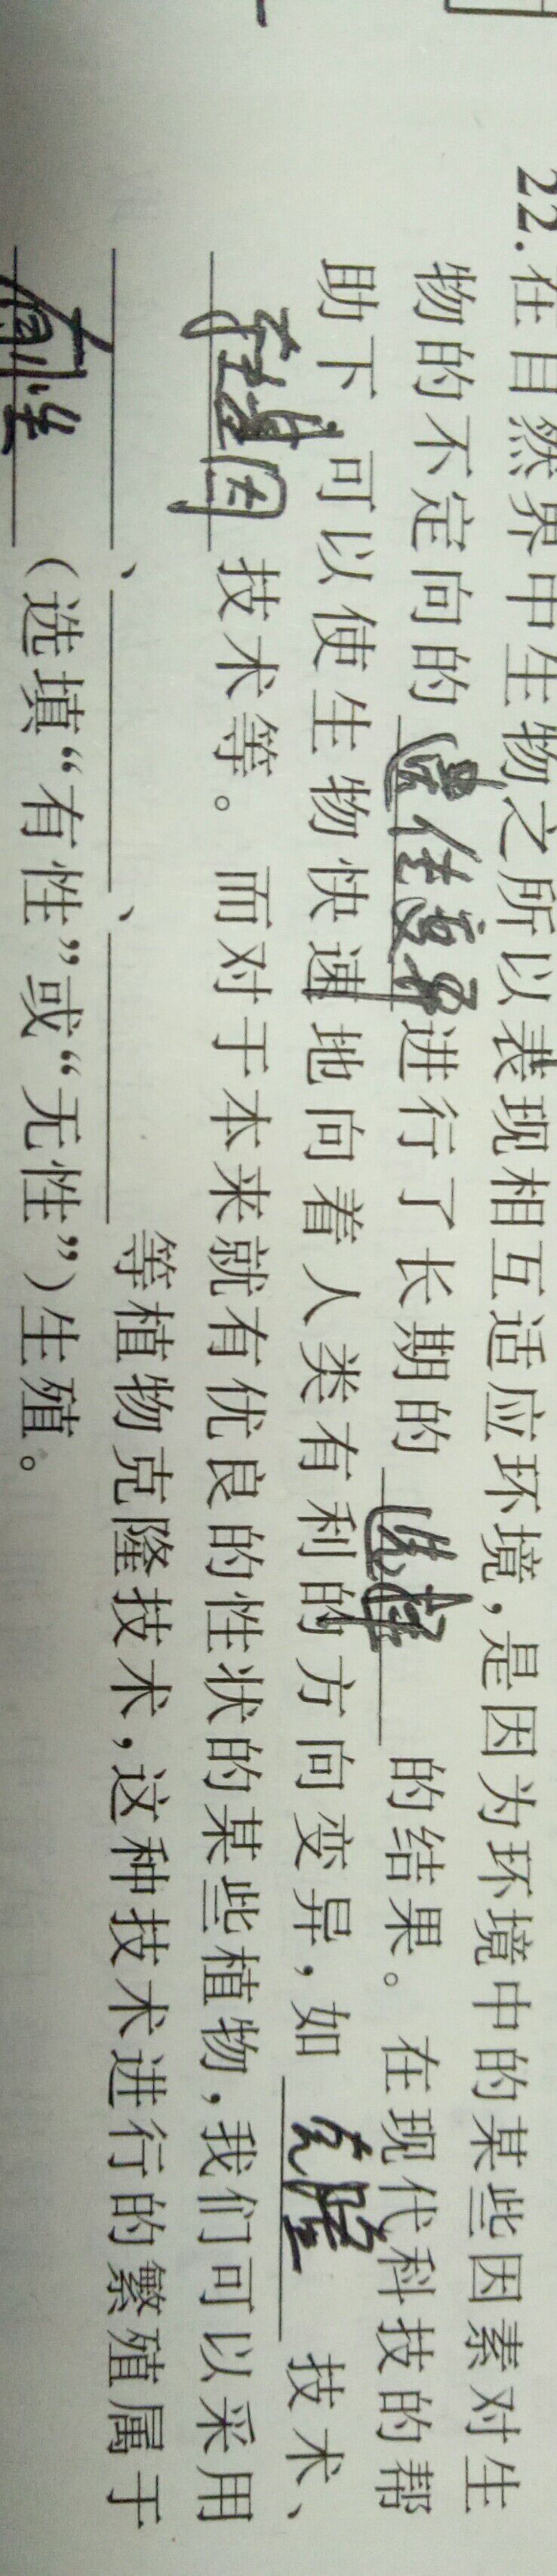 22.在自然界中生物之所以表现相互适应环境,是因为环境中的某些因素对生
物的不定向的遗传变异进行了长期的选择的结果。在现代科技的帮
助下,可以使生物快速地向着人类有利的方向变异,如克隆技术、
转基因技术等。而对于本来就有优良的性状的某些植物,我们可以采用
、、等植物克隆技术,这种技术进行的繁殖属于
有性(选填“有性”或“无性”)生殖。